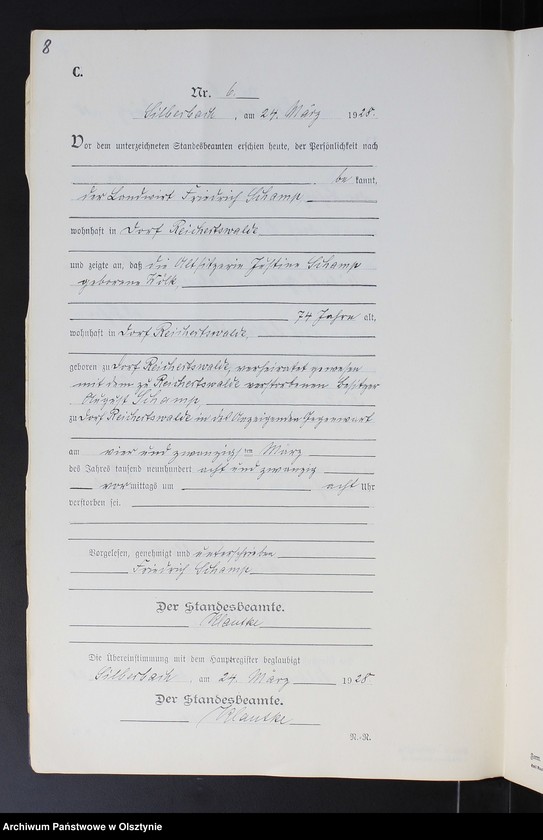 8
C.
Nr. 6.
Silberbach, am 24. März 1928.
Vor dem unterzeichneten Standesbeamten erschien heute, der Persönlichkeit nach
be kannt,
der Landwirt Friedrich Schamp
wohnhaft in Dorf Reichertswalde
und zeigte an, daß die Altsitzerin Justine Schamp
geborene
74 Jahre alt,
wohnhaft in Dorf Reichertswalde,
geboren zu Dorf Reichertswalde, verheiratet gewesen
mit dem zu Reichertswalde verstorbenen Besitzer
August Schamp
zu Dorf Reichertswalde in des Anzeigenden Gegenwart
am vier und zwanzigsten März
des Jahres tausend neunhundert acht und zwanzig
vormittags um acht Uhr
verstorben sei.
Vorgelesen, genehmigt und unterschrieben
Friedrich Schamp
Der Standesbeamte.
Klautke
Die Übereinstimmung mit dem Hauptregister beglaubigt
Silberbach, am 24. März 1928
Der Standesbeamte.
Klautke
R.-R.
Archiwum Państwowe w Olsztynie